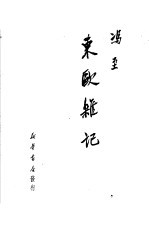 冯至
東歐雜記
新華書店發行